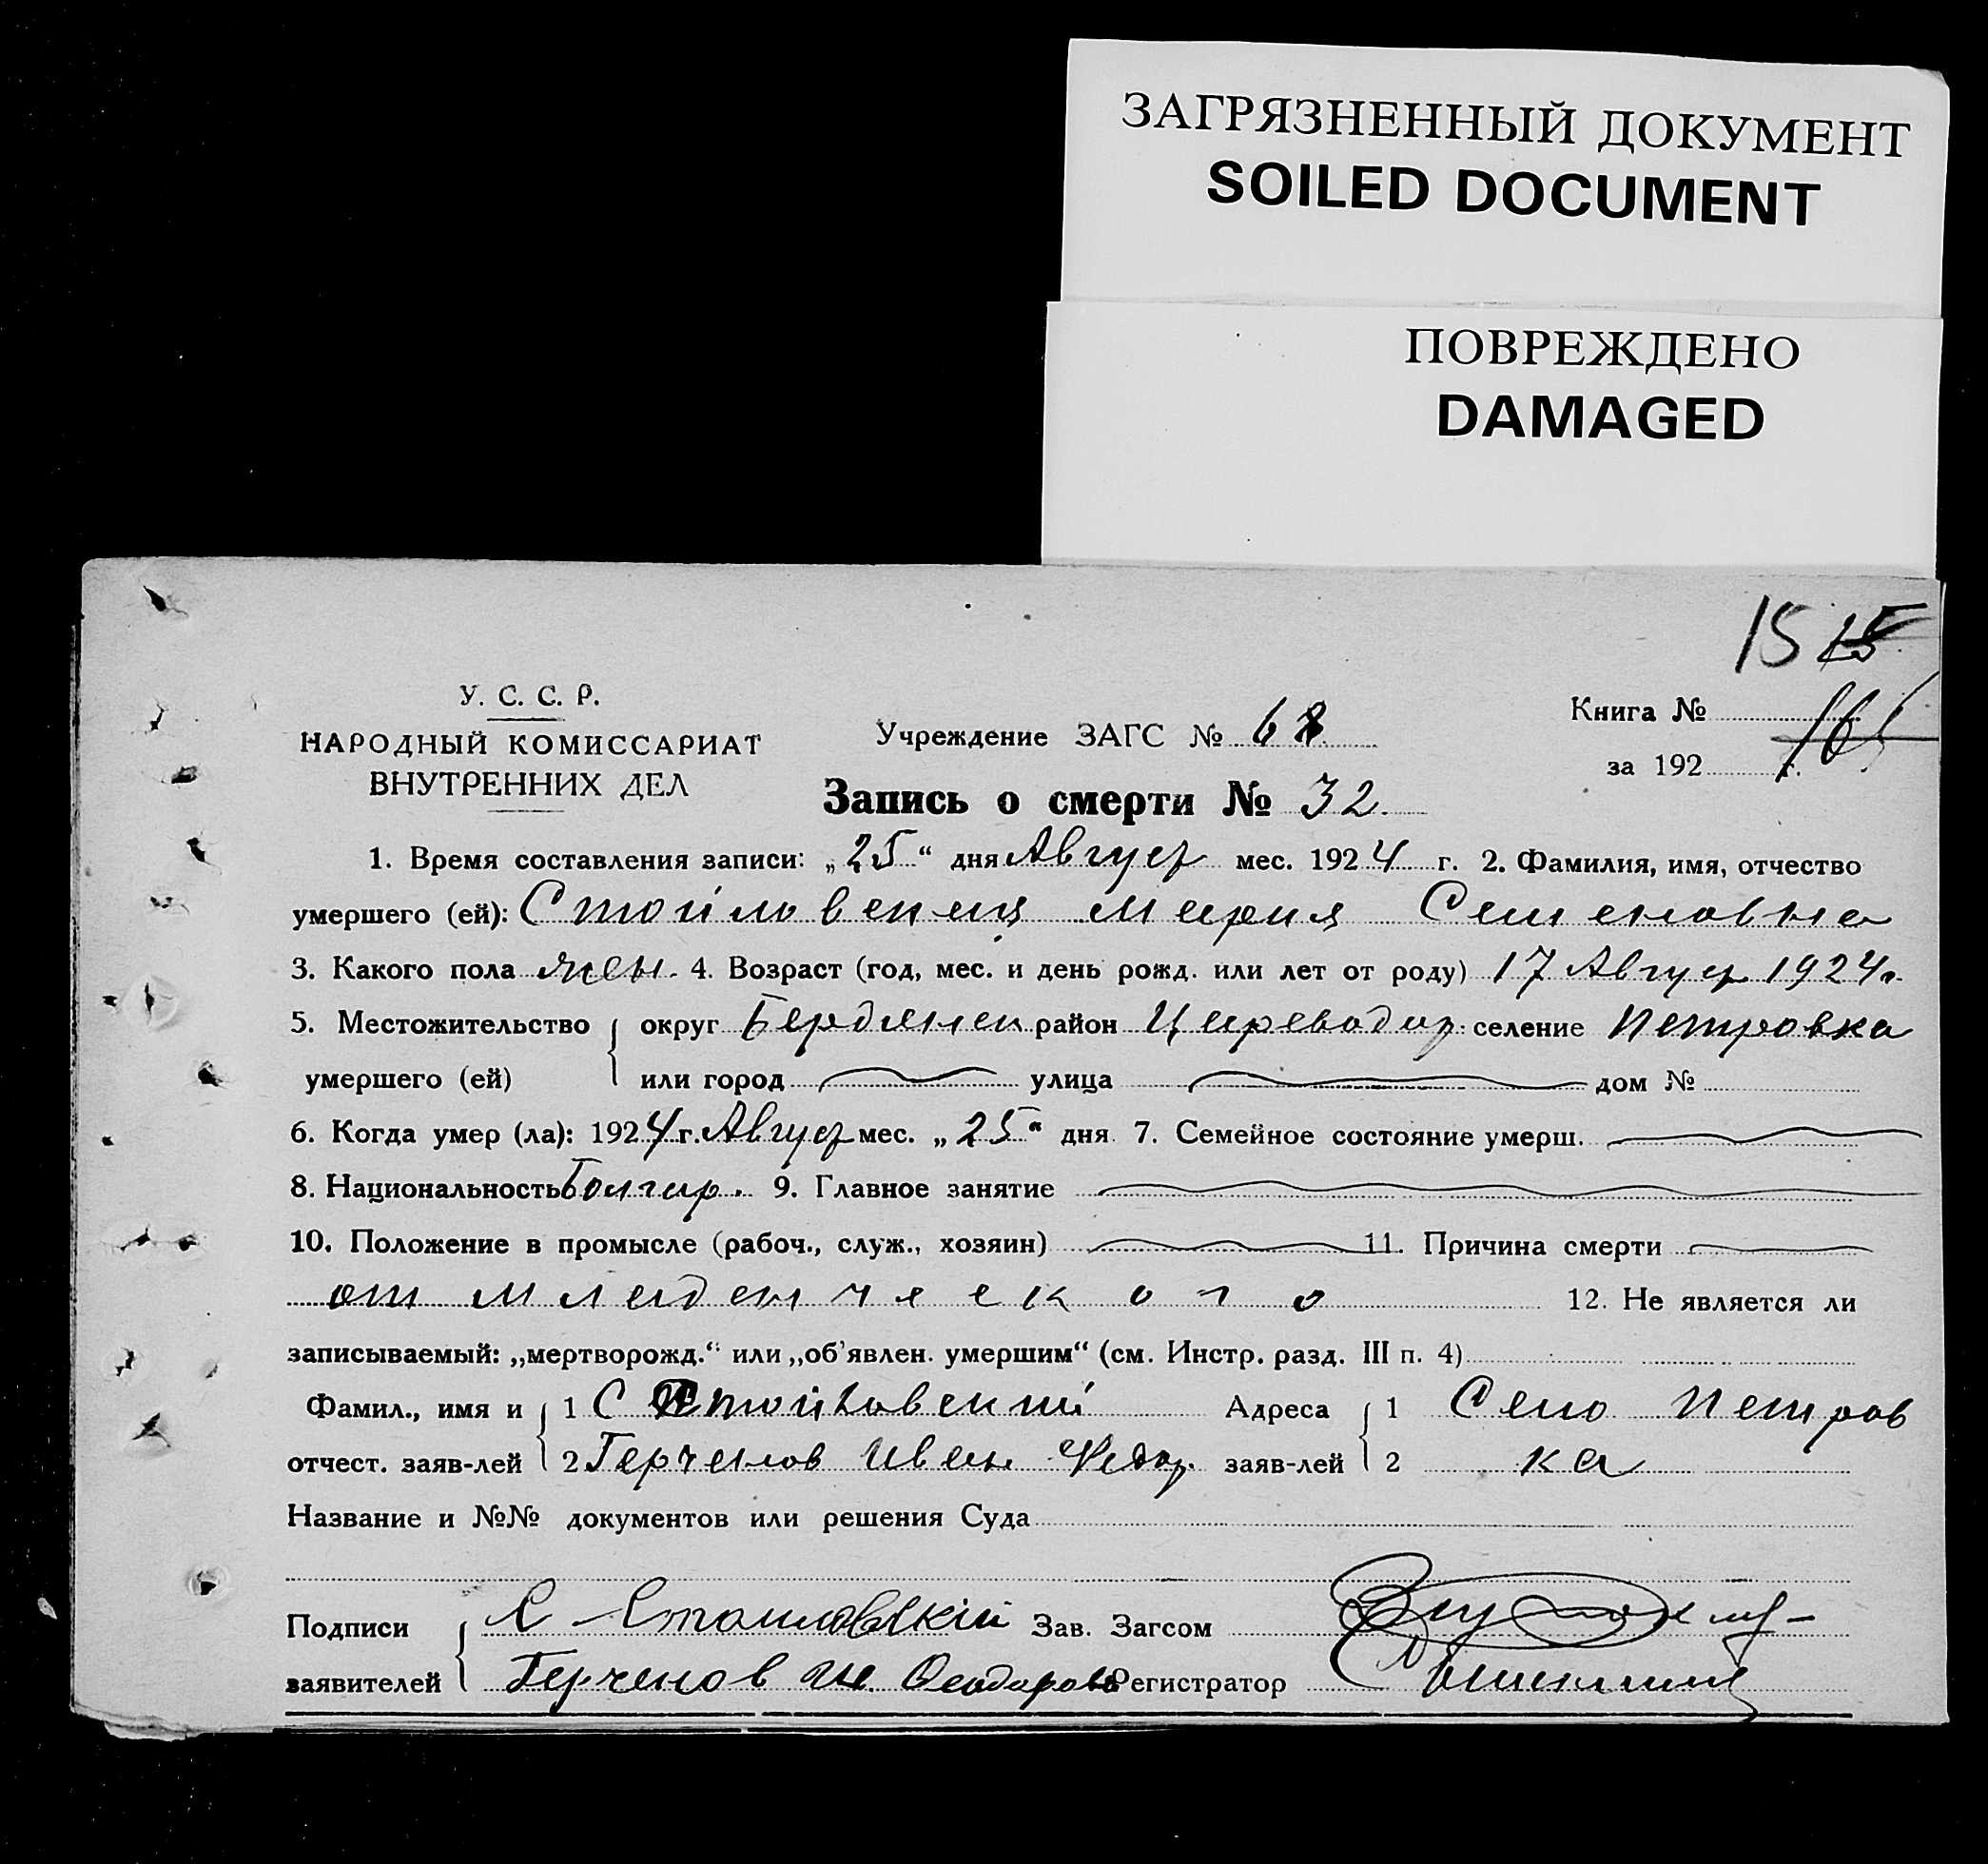 ЗАГРЯЗНЕННЫЙ ДОКУМЕНТ
SOILED DOCUMENT
ПОВРЕЖДЕНО
DAMAGED
15 15
У. С. С. Р.
НАРОДНЫЙ КОМИССАРИАТ
ВНУТРЕННИХ ДЕЛ
Учреждение ЗАГС № 68
Книга №
за 192 г.
Запись о смерти № 32.
1. Время составления записи: „25“ дня Август мес. 1924 г. 2. Фамилия, имя, отчество
умершего (ей): Стойловская Мария Семеновна
3. Какого пола жен. 4. Возраст (год, мес. и день рожд. или лет от роду) 17 Август 1924г.
5. Местожительство округ Бердянск район Цареводар. селение Петровка
умершего (ей) или город улица дом №
6. Когда умер (ла): 1924 г. Август мес. „25“ дня 7. Семейное состояние умерш.
8. Национальность Болгар. 9. Главное занятие
10. Положение в промысле (рабоч., служ., хозяин) 11. Причина смерти
от младенческого 12. Не является ли
записываемый: „мертворожд.“ или „об'явлен. умершим“ (см. Инстр. разд. III п. 4)
Фамил., имя и 1 С Стойловский Адреса 1 Село Петров
отчест. заяв-лей 2 Герчелов Иван Федор. заяв-лей 2 ка
Название и №№ документов или решения Суда
Подписи С Стоиловскій Зав. Загсом
заявителей Регистратор